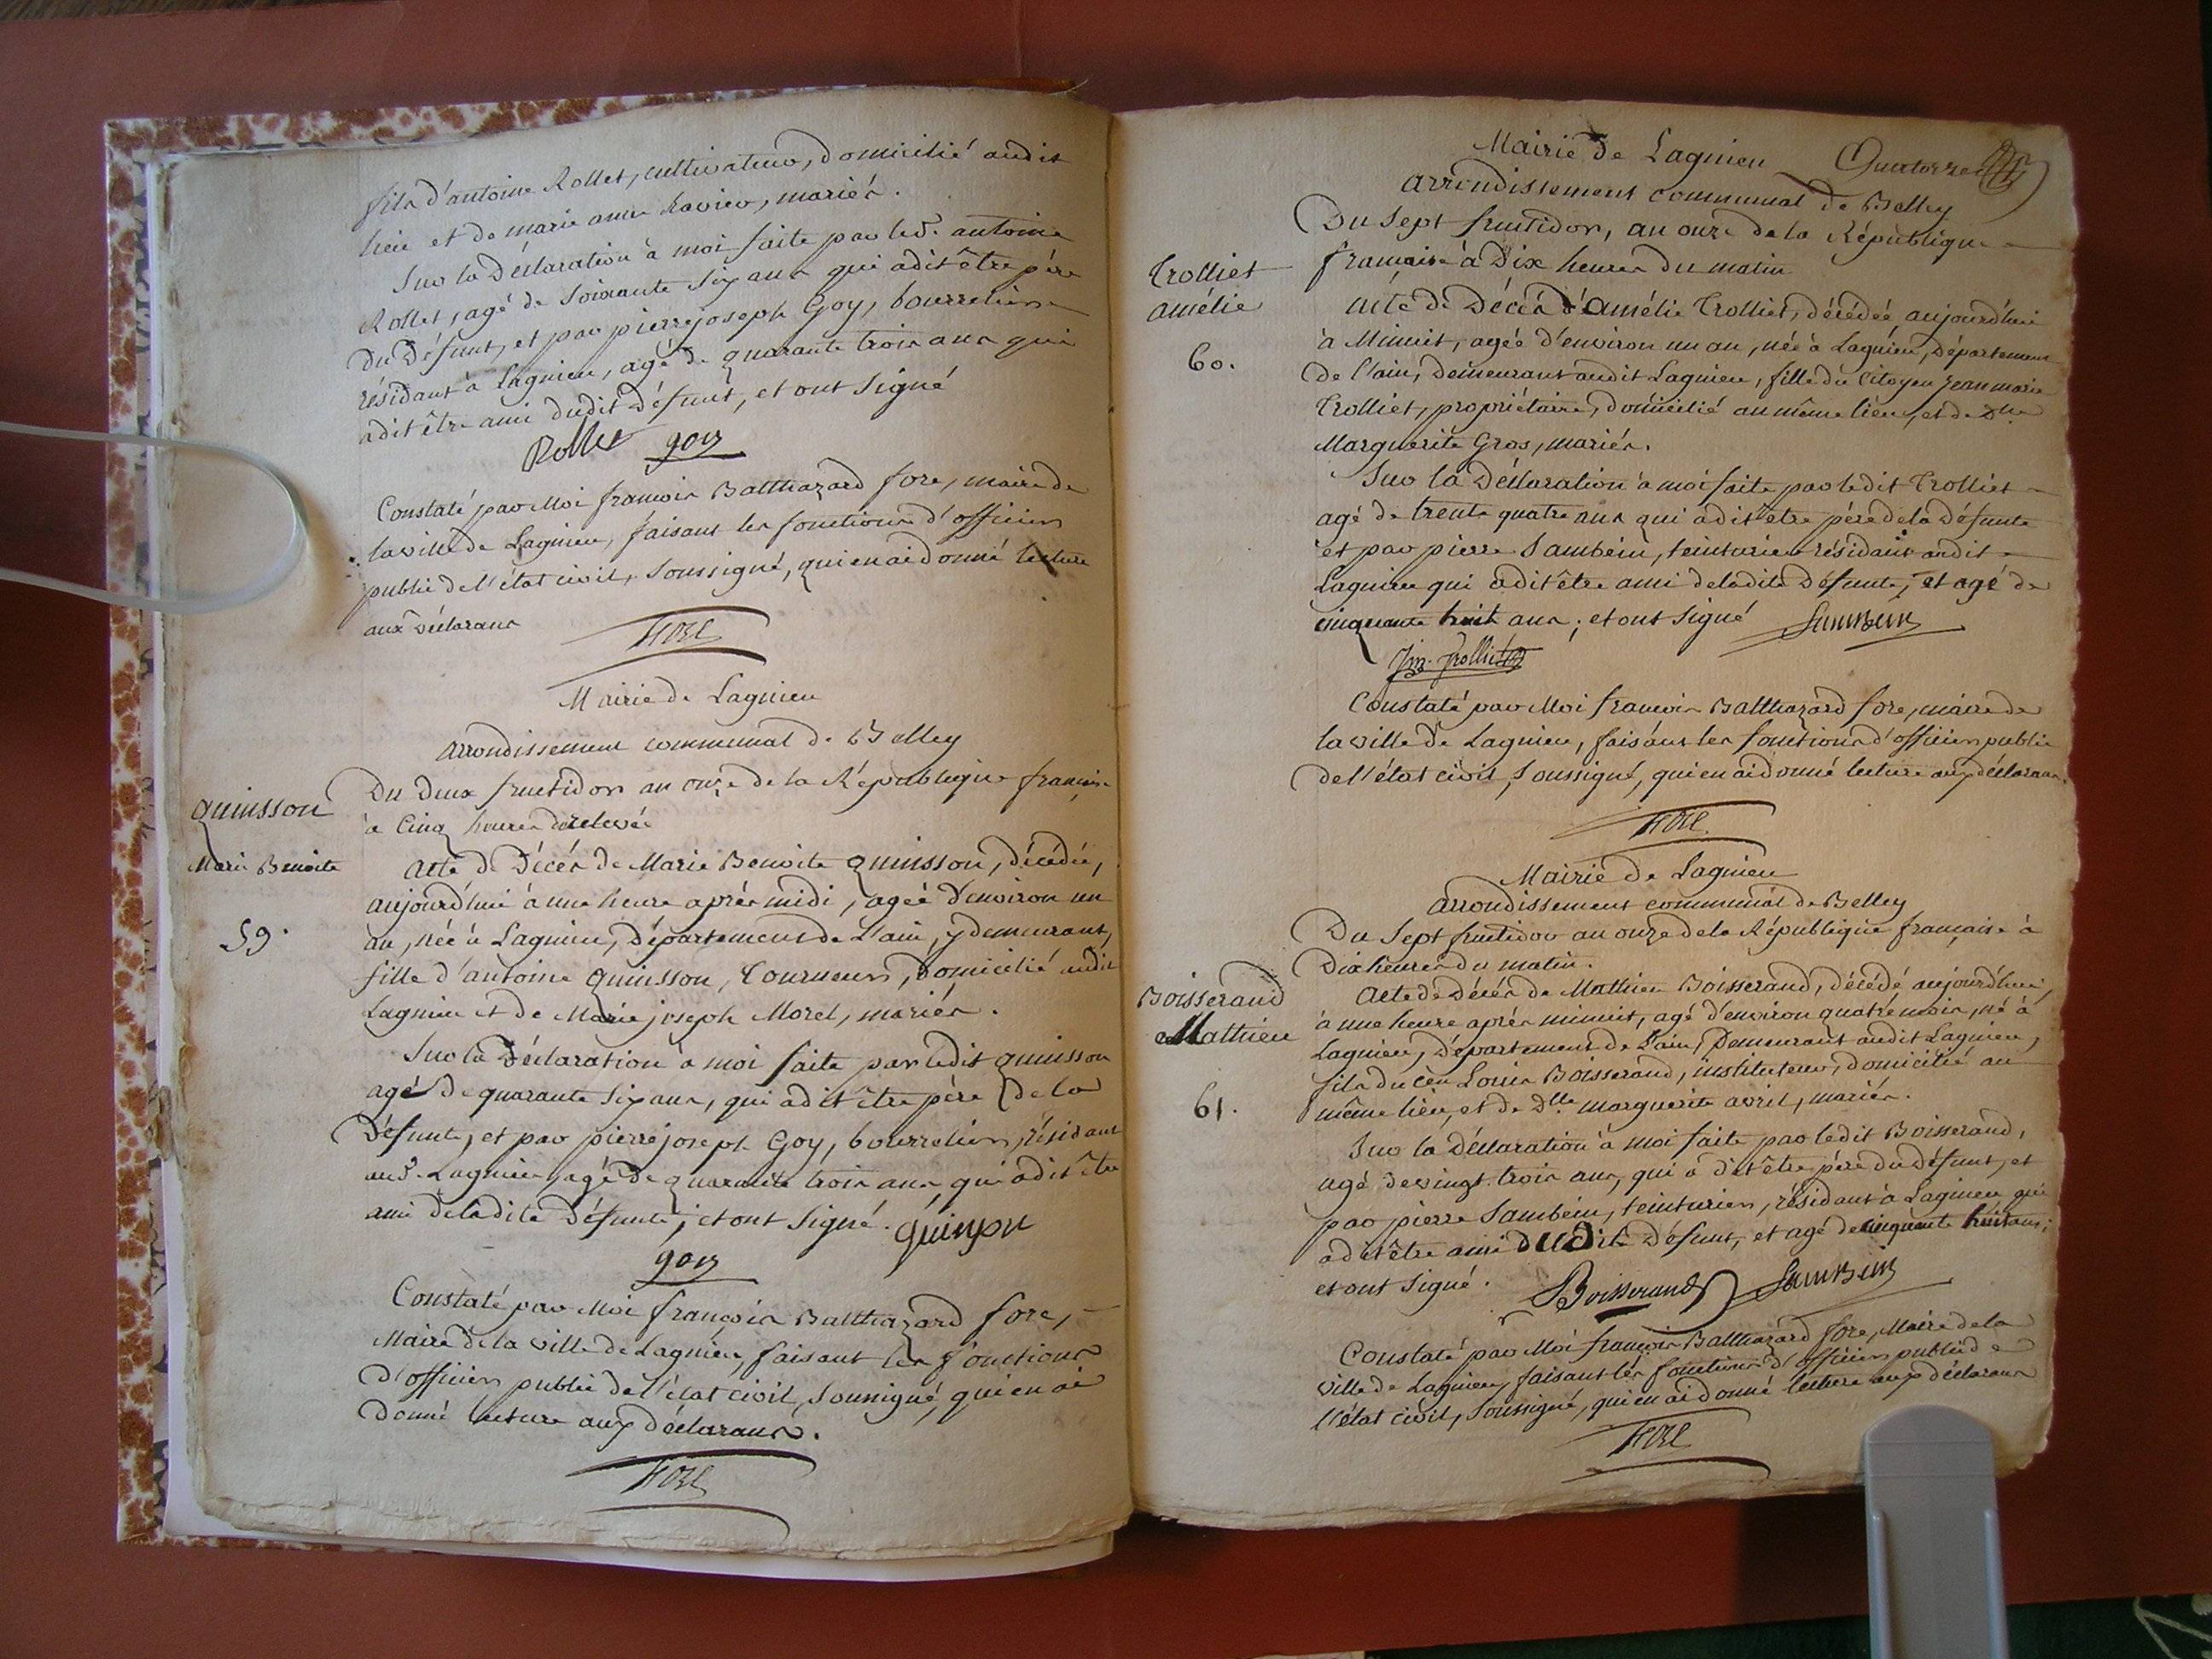 fils d'antoine Rollet, cultivateur, domicilié audit
lieu et de marie anne Ravier, mariés.
Sur la Déclaration à moi faite par led. antoine
Rollet, agé de Soixante Six ans qui a dit être père
du Défunt, et par pierre joseph Goy, bourrelier
résidant à Lagnieu, agé de quarante trois ans qui
a dit être ami dudit Défunt, et ont Signé
Rollet goy
Constaté par Moi françois Balthazard fore, maire de
la ville de Lagnieu, faisant les fonctions d'officier
public de l'état civil, Soussigné, qui en ai donné lecture
aux Déclarans
FORE
Mairie de Lagnieu
arrondissement communal de Belley
Du Deux fructidor an onze de la République française
à Cinq heures de relevée
quinsson
Marie Benoite
59.
Acte de Décès de Marie Benoite quinsson, décédée,
aujourd'hui à une heure après midi, agée d'environ un
an, née à Lagnieu, Département de L'ain, y demeurant,
fille d'antoine quinsson, Tourneur, Domicilié audit
Lagnieu et de Marie joseph Morel, mariés.
Sur la Déclaration à moi faite par ledit quinsson
agé de quarante Six ans, qui a dit être père de la
Défunte, et par pierre joseph Goy, bourrelier, résidant
aud. Lagnieu agé de quarante trois ans, qui a dit être
ami de la dite Défunte; et ont Signé. quinson
goy
Constaté par Moi françois Balthazard fore,
Maire de la ville de Lagnieu, faisant les fonctions
D'officier public de l'état civil, Soussigné, qui en ai
Donné lecture aux déclarans.
FORE
Mairie de Lagnieu Quatorze
arrondissement communal de Belley
Du Sept fructidor, an onze de la République
française à Dix heures du matin
Trolliet
amélie
60.
Acte de Décès d'Amélie Trolliet, décédée aujourd'hui
à Minuit, agée d'environ un an, née à Lagnieu, Département
de l'ain, demeurant audit Lagnieu, fille du Citoyen jean marie
Trolliet, propriétaire, domicilié au même lieu, et de Dlle
Marguerite Gros, mariés.
Sur la Déclaration à moi faite par ledit Trolliet
agé de trente quatre ans qui a dit être père de la défunte
et par pierre Sambein, teinturier résidant audit
Lagnieu qui a dit être ami de la dite Défunte, et agé de
cinquante huit ans; et ont Signé Sambein
Jm. Trolliet
Constaté par Moi françois Balthazard fore, maire de
la ville de Lagnieu, faisant les fonctions d'officier public
de l'état civil, Soussigné, qui en ai donné lecture aux déclarans.
FORE
Mairie de Lagnieu
arrondissement communal de Belley
Du Sept fructidor an onze de la République française à
Dix heures du matin.
Boisserand
Mathieu
61.
Acte de Décès de Mathieu Boisserand, décédé aujourd'hui,
à une heure après minuit, agé d'environ quatre mois, né à
Lagnieu, Département de L'ain, Demeurant audit Lagnieu,
fils du cen Louis Boisserand, instituteur, domicilié au
même lieu, et de Dlle marguerite avril, mariés.
Sur la Déclaration à moi faite par ledit Boisserand,
agé de vingt-trois ans, qui a dit être père du Défunt, et
par pierre Sambein, teinturier, résidant à Lagnieu qui
a dit être ami dudit Défunt, et agé de cinquante huit ans;
et ont Signé. Boisserand Sambein
Constaté par Moi françois Balthazard fore, Maire de la
ville de Lagnieu, faisant les fonctions d'officier public de
l'état civil, Soussigné, qui en ai donné lecture aux déclarans
FORE